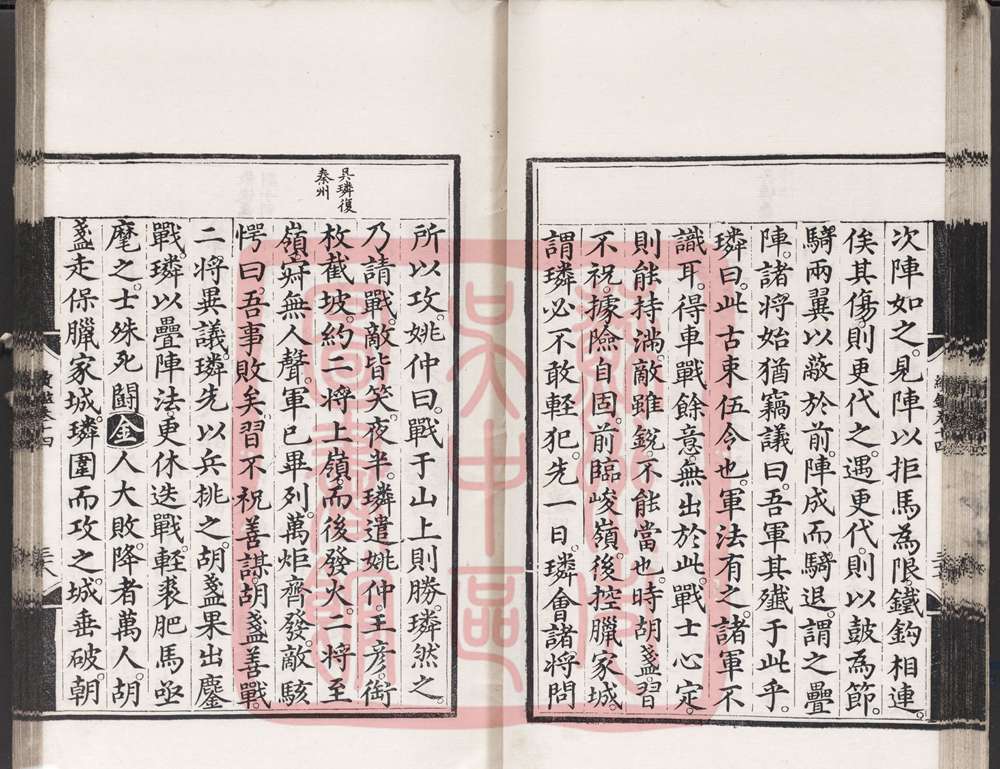 次陣如之。見陣以拒馬為限。鐵鈎相連。
俟其傷。則更代之。遇更代。則以鼓為節。
騎兩翼以蔽於前。陣成而騎退。謂之疊
陣。諸將始猶竊議曰。吾軍其殱于此乎。
璘曰。此古束伍令也。軍法有之。諸軍不
識耳。得車戰餘意。無出於此。戰士心定。
則能持滿。敵雖銳。不能當也。時胡盞習
不祝。據險自固。前臨峻嶺。後控臘家城。
謂璘必不敢輕犯。先一日。璘會諸將問
吳璘復
秦州
所以攻。姚仲曰。戰于山上則勝。璘然之。
乃請戰。敵皆笑。夜半。璘遣姚仲。王彥。銜
枚截坡。約二將上嶺。而後發火。二將至
嶺。寂無人聲。軍已畢列。萬炬齊發。敵駭
愕曰。吾事敗矣。習不祝善謀。胡盞善戰。
二將異議。璘先以兵挑之。胡盞果出鏖
戰。璘以疊陣法更休迭戰。輕裘肥馬亟
麾之。士殊死鬪。金人大敗。降者萬人。胡
盞走保臘家城。璘圍而攻之。城垂破。朝